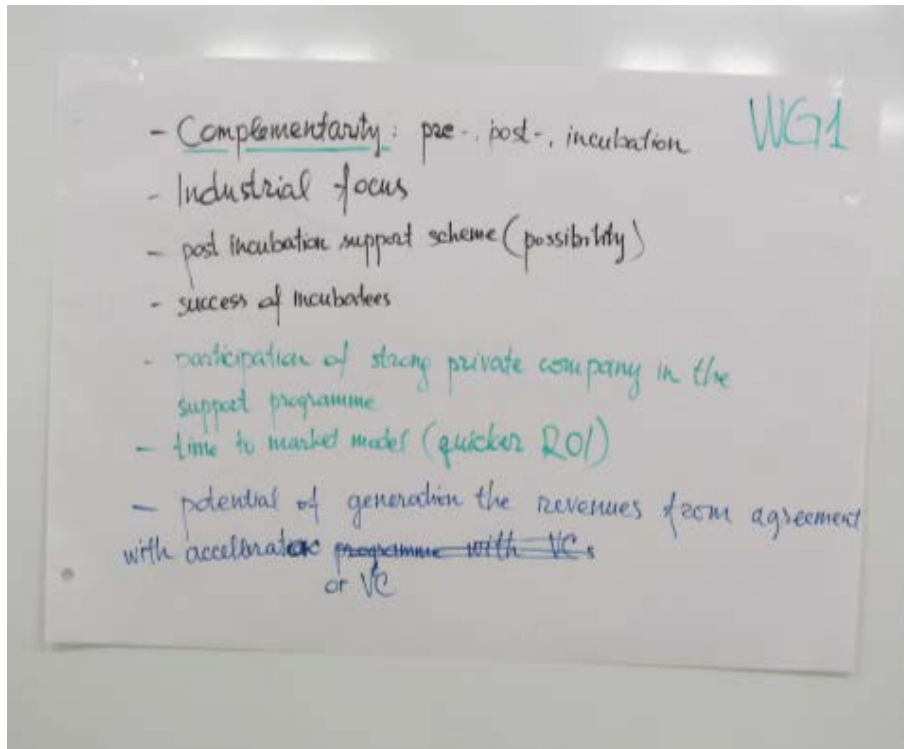 WG1
- Complementarity: pre-, post-, incubation
- Industrial focus
- post incubation support scheme (possibility)
- success of incubatees
- participation of strong private company in the
support programme
- time to market model (quicker ROI)
- potential of generation the revenues from agreement
with accellerator programme with VCs
or VC